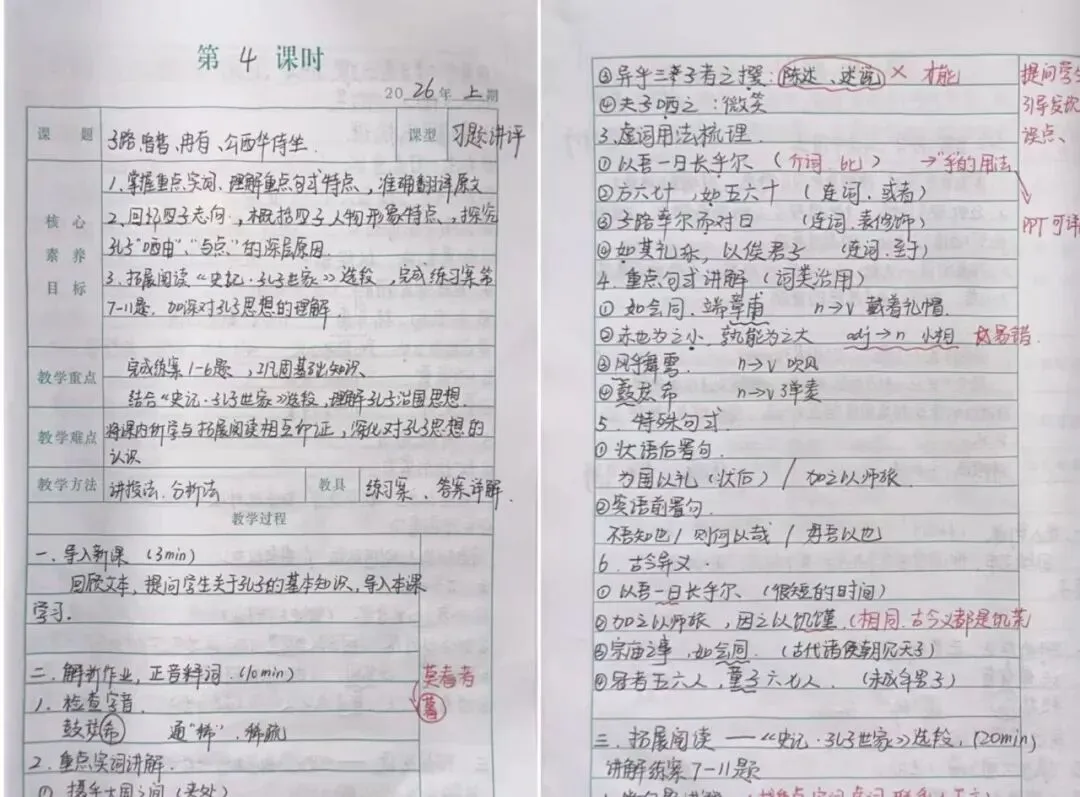 第 4 课时
2026年 上 期
课题 子路、曾皙、冉有、公西华侍坐. 课型 习题讲评
核心素养目标
1.掌握重点实词、理解重点句式特点,准确翻译原文
2.回忆四子志向,概括四子人物形象特点,探究
孔子"哂由"、"与点"的深层原因.
3.拓展阅读《史记·孔子世家》选段,完成练习案第
7-11题.加深对孔子思想的理解.
教学重点 完成练案1-6题,巩固基础知识、
结合《史记·孔子世家》选段,理解孔子治国思想.
教学难点 将课内所学与拓展阅读相互印证,深化对孔子思想的
认识
教学方法 讲授法.分析法 教具 练习案、答案详解.
教学过程
一.导入新课 (3min)
回顾文本,提问学生关于孔子的基本知识、导入本课
学习.
二.解析作业,正音释词.(10min)
1.检查字音.
鼓瑟希 通"稀".稀疏
2.重点实词讲解.
① 摄乎大国之间(夹处)
③异乎三子者之撰:陈述、述说 × 才能
④夫子哂之:微笑
3.虚词用法梳理.
①以吾一日长乎尔 (介词.比) →"乎"的用法
②方六七十,如五六十 (连词.或者)
③子路率尔而对曰 (连词.表修饰)
④如其礼乐,以俟君子 (连词.至于)
PPT可详
4.重点句式讲解(词类活用)
① 如会同.端章甫 n→v 戴着礼帽.
②赤也为之小.孰能为之大 adj→n 小相 易错.
③风乎舞雩. n→v 吹风
④鼓瑟希 n→v 弹奏
5.特殊句式.
①状语后置句.
为国以礼(状后) / 加之以师旅.
②宾语前置句.
不吾知也 / 则何以哉 / 毋吾以也
6.古今异义.
① 以吾一日长乎尔、(很短的时间)
② 加之以师旅,因之以饥馑.(相同.古今义都是饥荒
③宗庙之事,如会同.(古代诸侯朝见天子)
④冠者五六人,童子六七人.(未成年男子)
三.拓展阅读——《史记·孔子世家》选段.(20min)
讲解练案7-11题
提问学生
引导发现
误点、